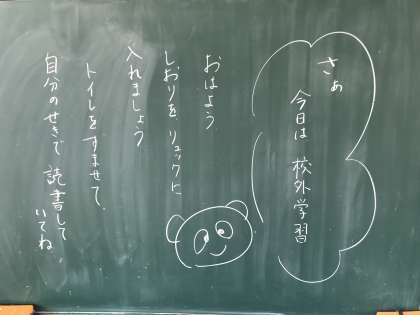 さぁ
今日は 校外学習
おはよう
しおりを リュックに
入れましょう
トイレをすませて、
自分のせきで 読書して
いてね。